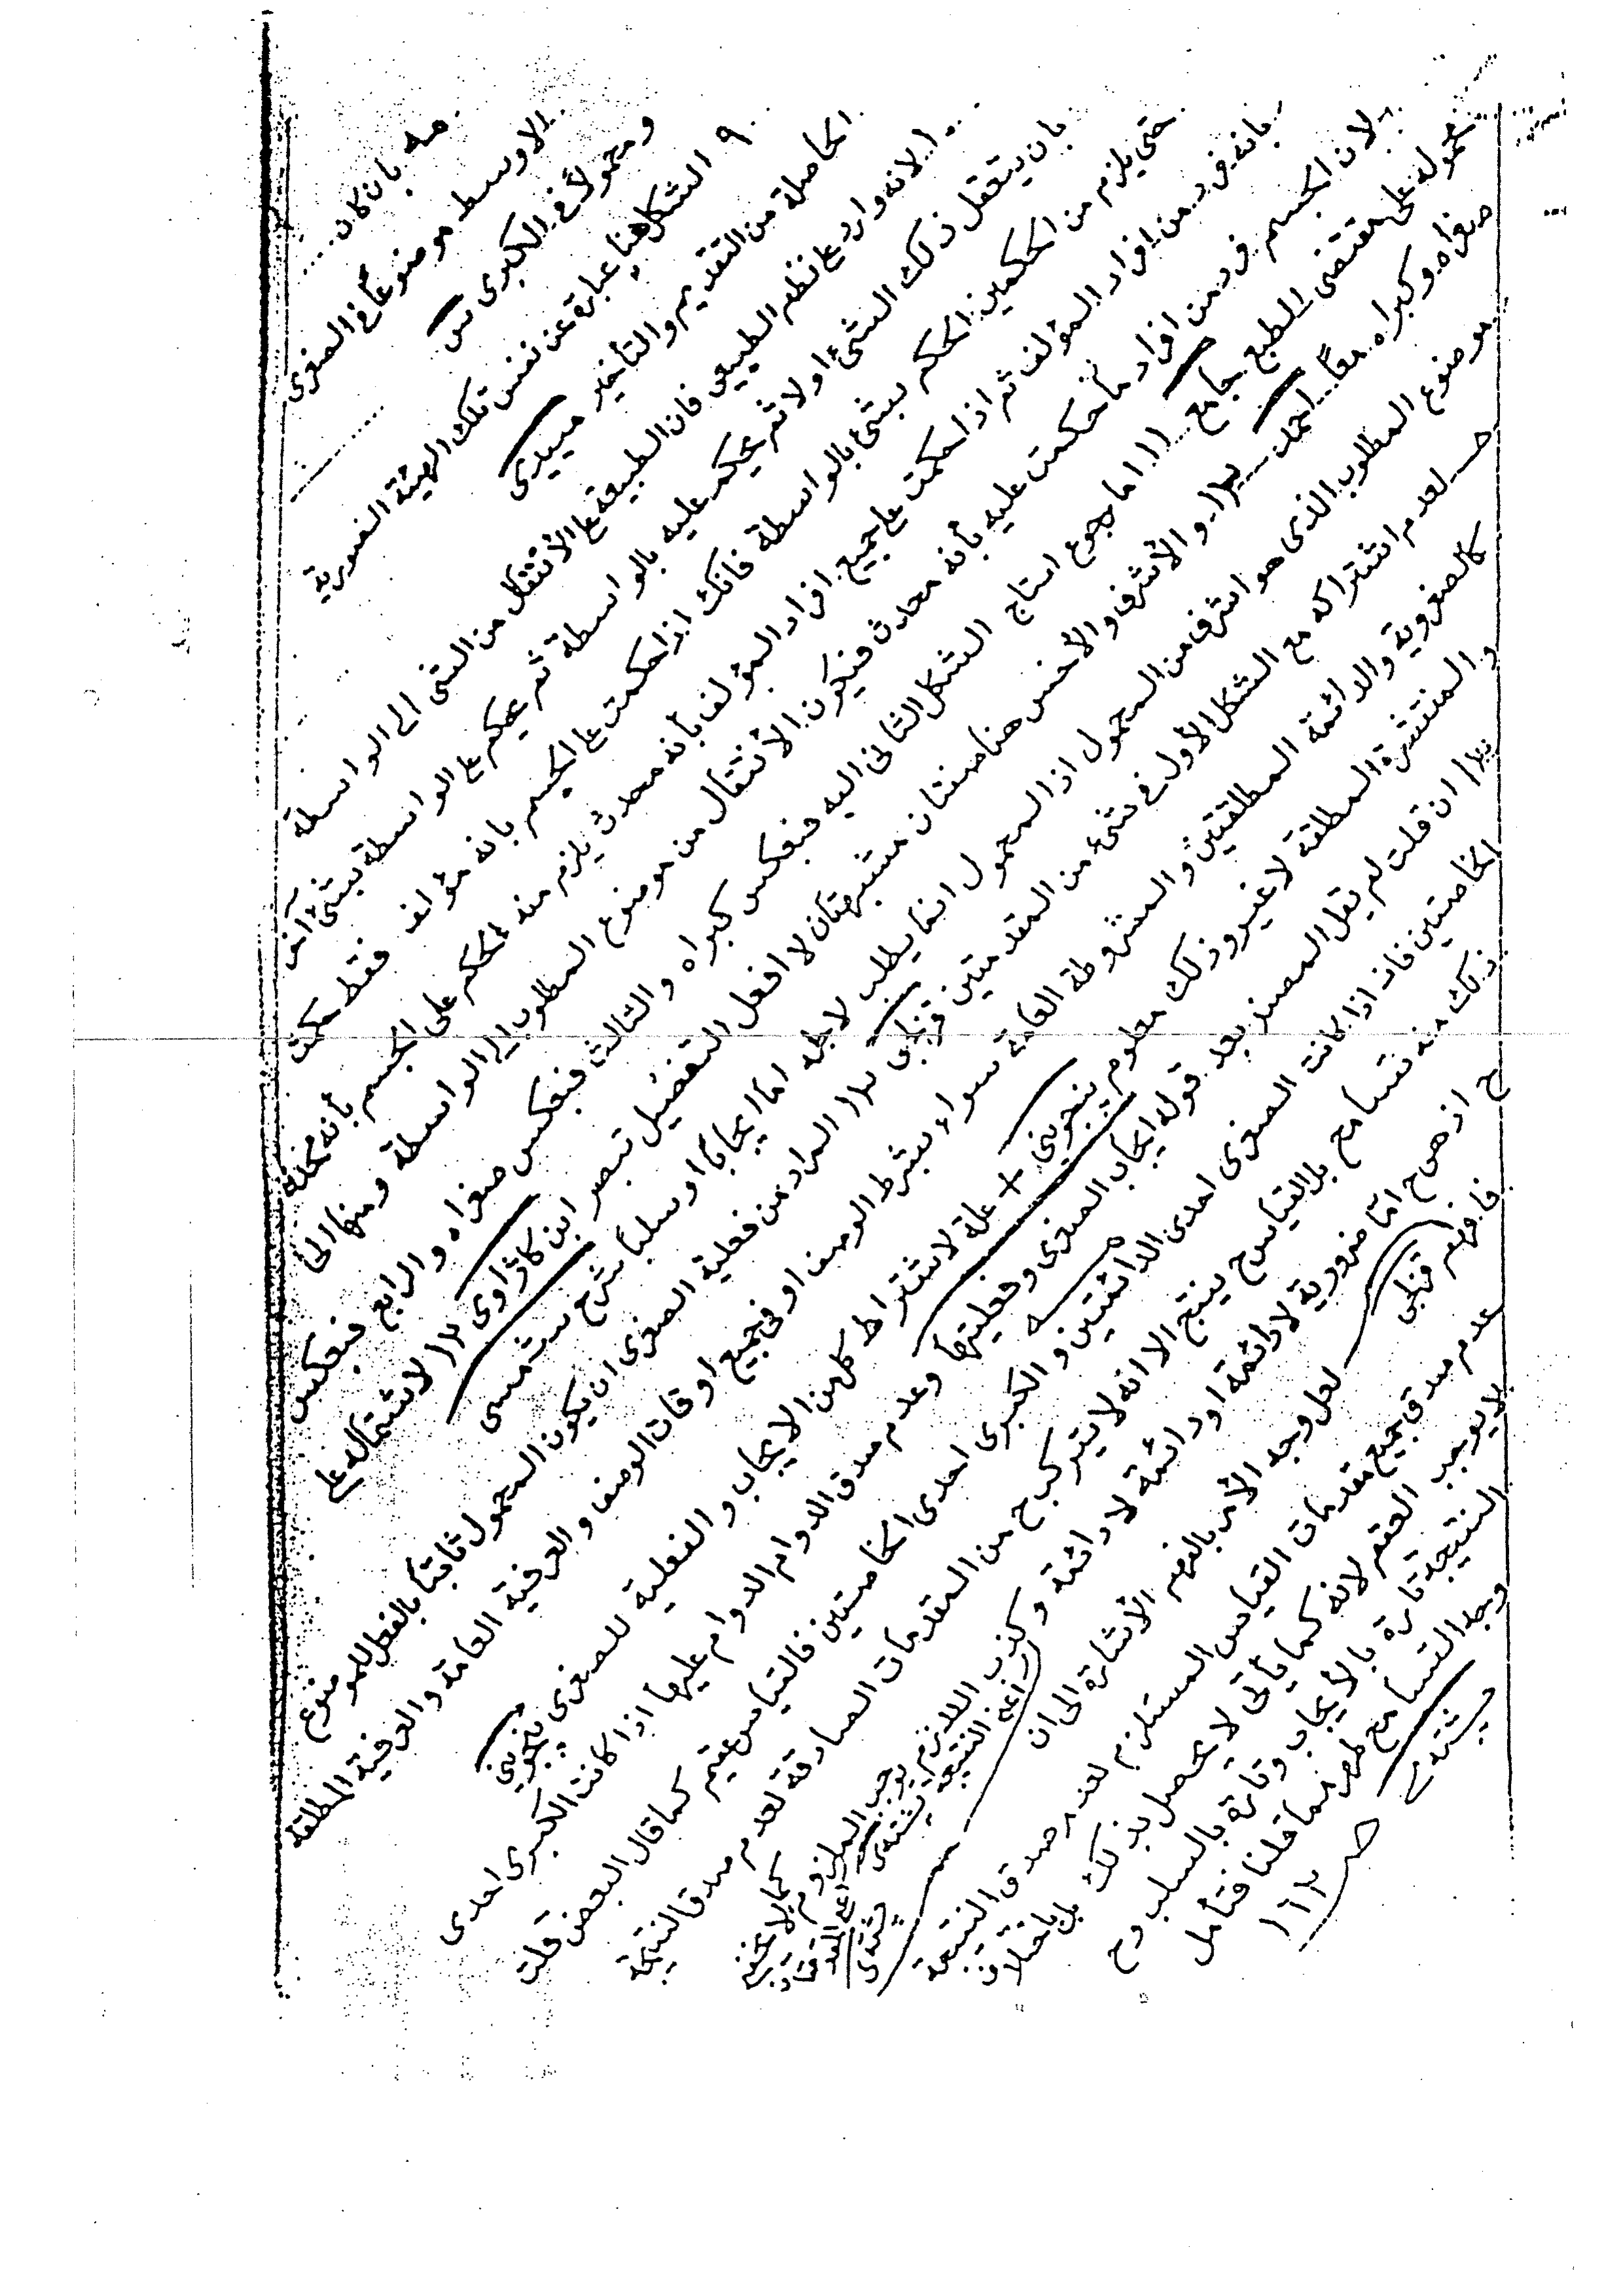 مه بان كان
الاوسط موضوعا في الصغرى
ومحمولا في الكبرى
٩ الشكل هنا عبارة عن نفس تلك الهيئة الصورية
الحاصلة من التقديم والتأخير ميبدى
لانه وارد على نظم الطبيعى فان الطبيعة على الأنتقال من الشئ الى الواسطة
بان يتعقل ذلك الشئ اولا ثم يحكم عليه بالواسطة ثم يحكم على الواسطة بشئ آخر
حتى يلزم من الحكمين الحكم بشئ بالواسطة فانك اذا حكمت على الجسم بانه مؤلف فقط حكمت
بانه فرد من افراد المؤلف ثم اذا حكمت على جميع افراد المؤلف بأنه محدث يلزم منه الحكم على الجسم بأنه محدث
لان الجسم فرد من افراد ما حكمت عليه بأنه محدث فيكون الأنتقال من موضوع المطلوب الى الواسطة ومنها الى
محموله على مقتضى الطبع جامع اما رجوع انتاج الشكل الثانى اليه فبعكس كبراه والثالث فبعكس صغراه والرابع فبعكس
صغراه وكبراه معا احمد والأشرف والأخس هنا صفتان مشبهتان لا افعل التفضيل تبصر ابن كاژاوى لاشتماله على
موضوع المطلوب الذى هو اشرف من المحمول اذ المحمول انما يطلب لاجله اما ايجابا او سلبا شرح شمسى
لعدم اشتراكه مع الشكل الأول في شئ من المقدمتين قزلجى المراد من فعلية الصغرى ان يكون المحمول ثابتا بالفعل للموضوع
كالضرورية والدائمة المطلقتين والمشروطة العامة سواء بشرط الوصف او في جميع اوقات الوصف والعرفية العامة والعرفية المطلقة
والمنتشرة المطلقة لا غير وذلك معلوم پنجوينى + علة لاشتراط كل من الايجاب والفعلية للصغرى پنجوينى
ان قلت لم يقل المصنف بعد قوله ايجاب الصغرى وفعليتها وعدم صدق الدوام الدوام عليها اذا كانت الكبرى احدى
الخاصتين فانه اذا كانت الصغرى احدى الدائمتين والكبرى احدى الخاصتين فالقياس عقيم كما قال البعض قلت
ذلك منه تسامح بل القياس ح ينتج الا انه لا يتركب ح من المقدمات الصادقة لعدم صدق النتيجة
ح اذ هى ح اما ضرورية لا دائمة او دائمة لا دائمة وكذب اللازم يوجب الملزوم كما لا يخفى
فافهم قزلجى لعل وجه الأمر بالفهم الأشارة الى ان
عدم صدق جميع مقدمات القياس المستلزم لعدم صدق النتيجة
لا يوجب العقم لانه كما يأتى لا يحصل بذلك بل باختلاف
النتيجة تارة بالأيجاب وتارة بالسلب وح
وجه التسامح ظهر مما قلنا فتأمل